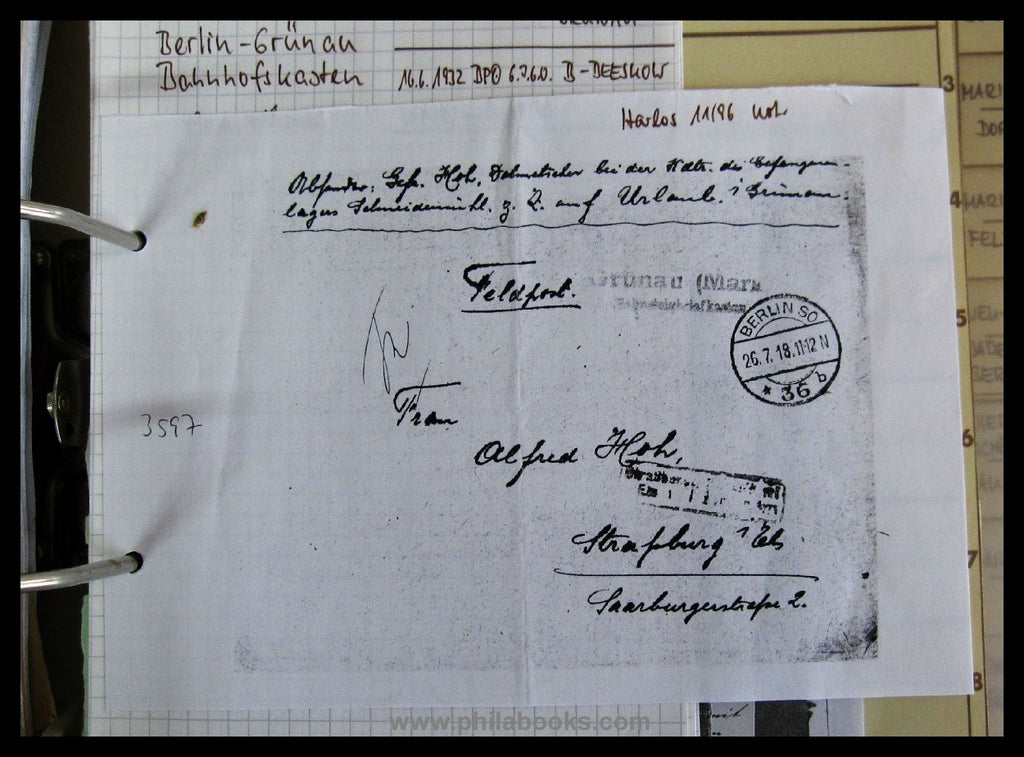 Berlin-Grünau
Bahnhofskasten
16.6.1932 BPO B-BEESKOW
Harlos 11/96
Absender: Gefr. Hoh, Dolmetscher bei der Kdtr. des Gefangenen-
lagers Schneidemühl. z. Z. auf Urlaub. i Grünau.
Feldpost.
Grünau (Mark
BERLIN SO
26.7.18.11-12 N
* 36 b
Frau
3597
Alfred Hoh,
Straßburg i Els
Saarburgerstraße 2.
3
MARI
DOR
4
MARI
FEL
5
6
7
8
www.philabooks.com